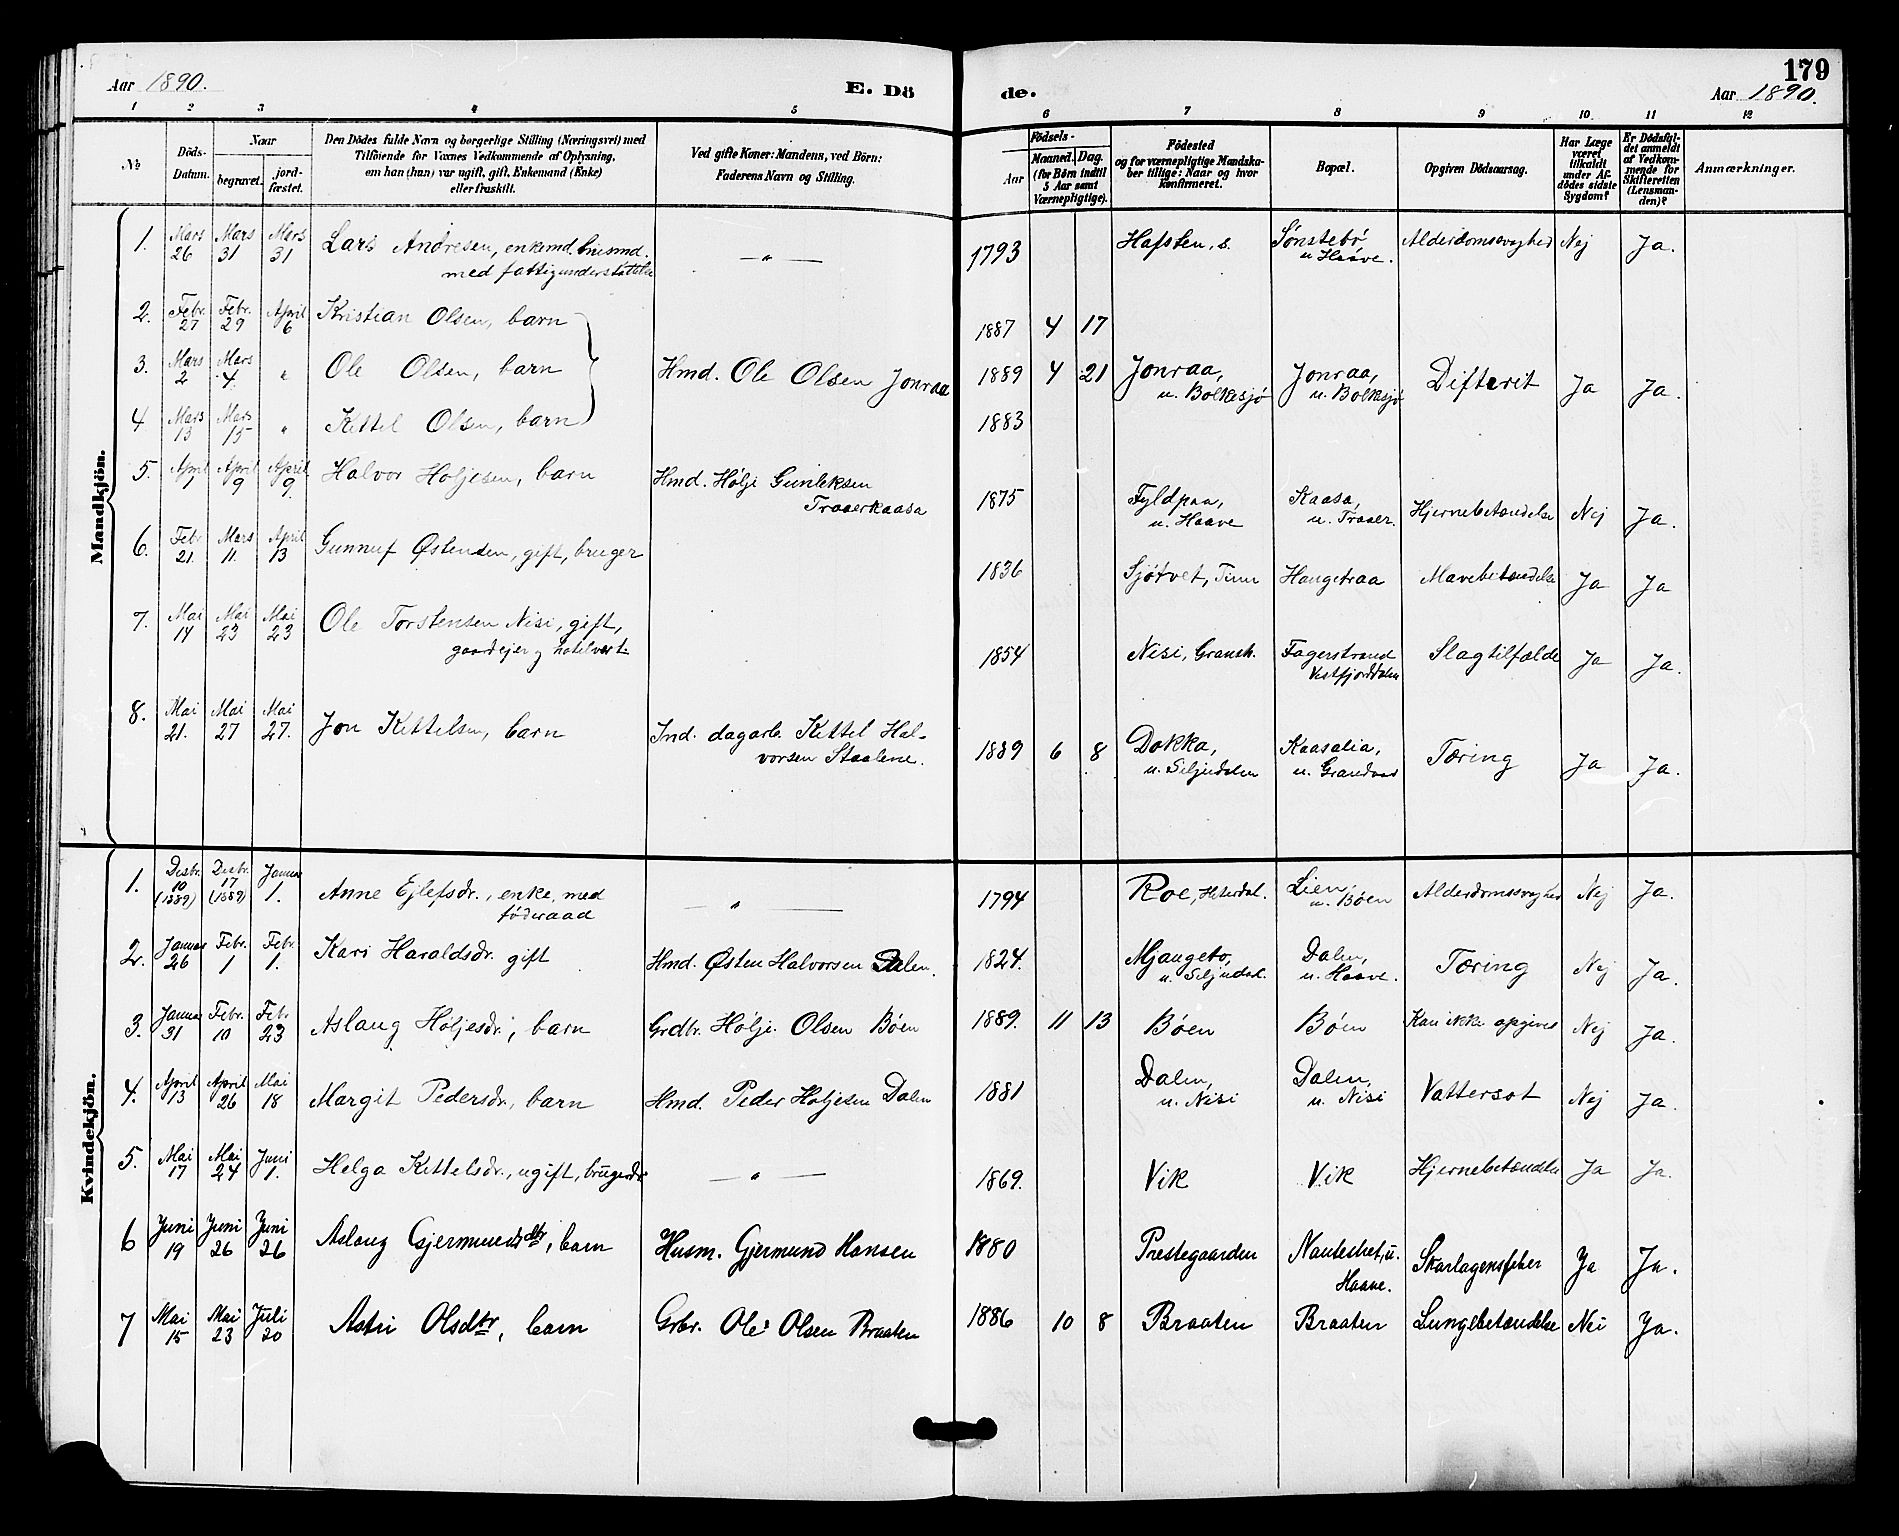 Aar 1890.
E. Dö
de.
179
Aar 1890.
1 2 3 4 5 6 7 8 9 10. 11 12
№
Döds-Datum.
Naar
begravet.
jord-fæstet.
Den Dödes fulde Navn og borgerlige Stilling (Næringsvei) med
Tilföiende for Voxnes Vedkommende af Oplysning,
om han (hun) var ugift, gift, Enkemand (Enke)
eller fraskilt.
Ved gifte Koner: Mandens, ved Börn:
Faderens Navn og Stilling.
Födsels-
Aar
Maaned. Dag.
(for Börn indtil
5 Aar samt
Værnepligtige).
Födested
og for værnepligtige Mandska-
ber tillige: Naar og hvor
konfirmeret.
Bopæl.
Opgiven Dödsaarsag.
Har Læge
været
tilkaldt
under Af-
dödes sidste
Sygdom?
Er Dödsfal-
det anmeldt
af Vedkom-
mende for
Skifteretten
(Lensman-
den)?
Anmærkninger.
Mandkjön.
1. Mars 26 Mars 31 Mars 31 Lars Andresen, enkemd. husmd. med fattigunderstöttelse — „ — 1793 Hafsten, s. Sønstebø u. Haave. Alderdomssvaghed Nej Ja.
2. Febr. 27 Febr. 29 April 6 Kristian Olsen, barn 1887 4 17
3. Mars 2 Mars 4. „ Ole Olsen, barn Hmd. Ole Olsen Jonraa 1889 4 21 Jonraa, u. Bolkesjø Jonraa, u. Bolkesjø Difterit Ja Ja.
4 Mars 13 Mars 15 „ Kittel Olsen, barn 1883
5. April 1 April 9 April 9. Halvor Holjesen, barn Hmd. Holje Gunleksen Traaerkaasa 1875 Fyldpaa, u. Haave Kaasa, u. Traaer. Hjernebetændelse Nej Ja.
6. Febr. 21. Mars 11. April 13 Gunnuf Østensen, gift, bruger 1836 Sjøtvet, Tinn Haugetraa Mavebetændelse Ja Ja
7. Mai 14 Mai 23 Mai 23 Ole Torstensen Nisi, gift, gaardejer og hotelvert 1854 Nisi, Gransh. Fagerstrand Vestfjorddalen Slagtilfælde Ja Ja.
8. Mai 21. Mai 27 Mai 27. Jon Kittelsen, barn Ind. dagarb. Kittel Halvorsen Staalene. 1889 6 8 Dokka, u. Seljudalen Kaasalia, u. Tæring Ja Ja.
Kvindekjön.
1. Desbr. 10 (1889) Desbr. 17 (1889) Januar 1. Anne Ejlefsdr., enke, med föderaad — „ — 1794 Roe, Hiterdal. Lien, u. Bøen Alderdomssvaghed Nej Ja.
2. Januar 26 Febr. 1 Febr. 1. Kari Haraldsdr. gift Hmd. Østen Halvorsen Dalen. 1824. Mjaugebo, u. Seljudal. Dalen, u. Haave. Tæring Nej Ja.
3. Januar 31 Febr. 10 Febr 23 Aslaug Holjesdr., barn Grdbr. Holje Olsen Bøen 1889. 11 13 Bøen Bøen Kan ikke opgives Nej Ja.
4. April 13 April 26 Mai 18 Margit Pedersdr., barn Hmd. Peder Holjesen Dalen 1881 Dalen, u. Nisi Dalen, u. Nisi Vattersot Nej Ja.
5. Mai 17 Mai 24 Juni 1. Helga Kittelsdr., ugift, brugerdr — „ — 1869. Vik Vik Hjernebetændelse Ja Ja.
6 Juni 19 Juni 26 Juni 26 Aslaug Gjermundsdtr, barn Husm. Gjermund Hansen 1880 Prestegaarden u. Haave. Skarlagensfeber Ja Ja.
7 Mai 15 Mai 23 Juli 20 Astri Olsdtr, barn Grbr. Ole Olsen Braaten 1886 10 8 Braaten Braaten Lungebetændelse Nei Ja.